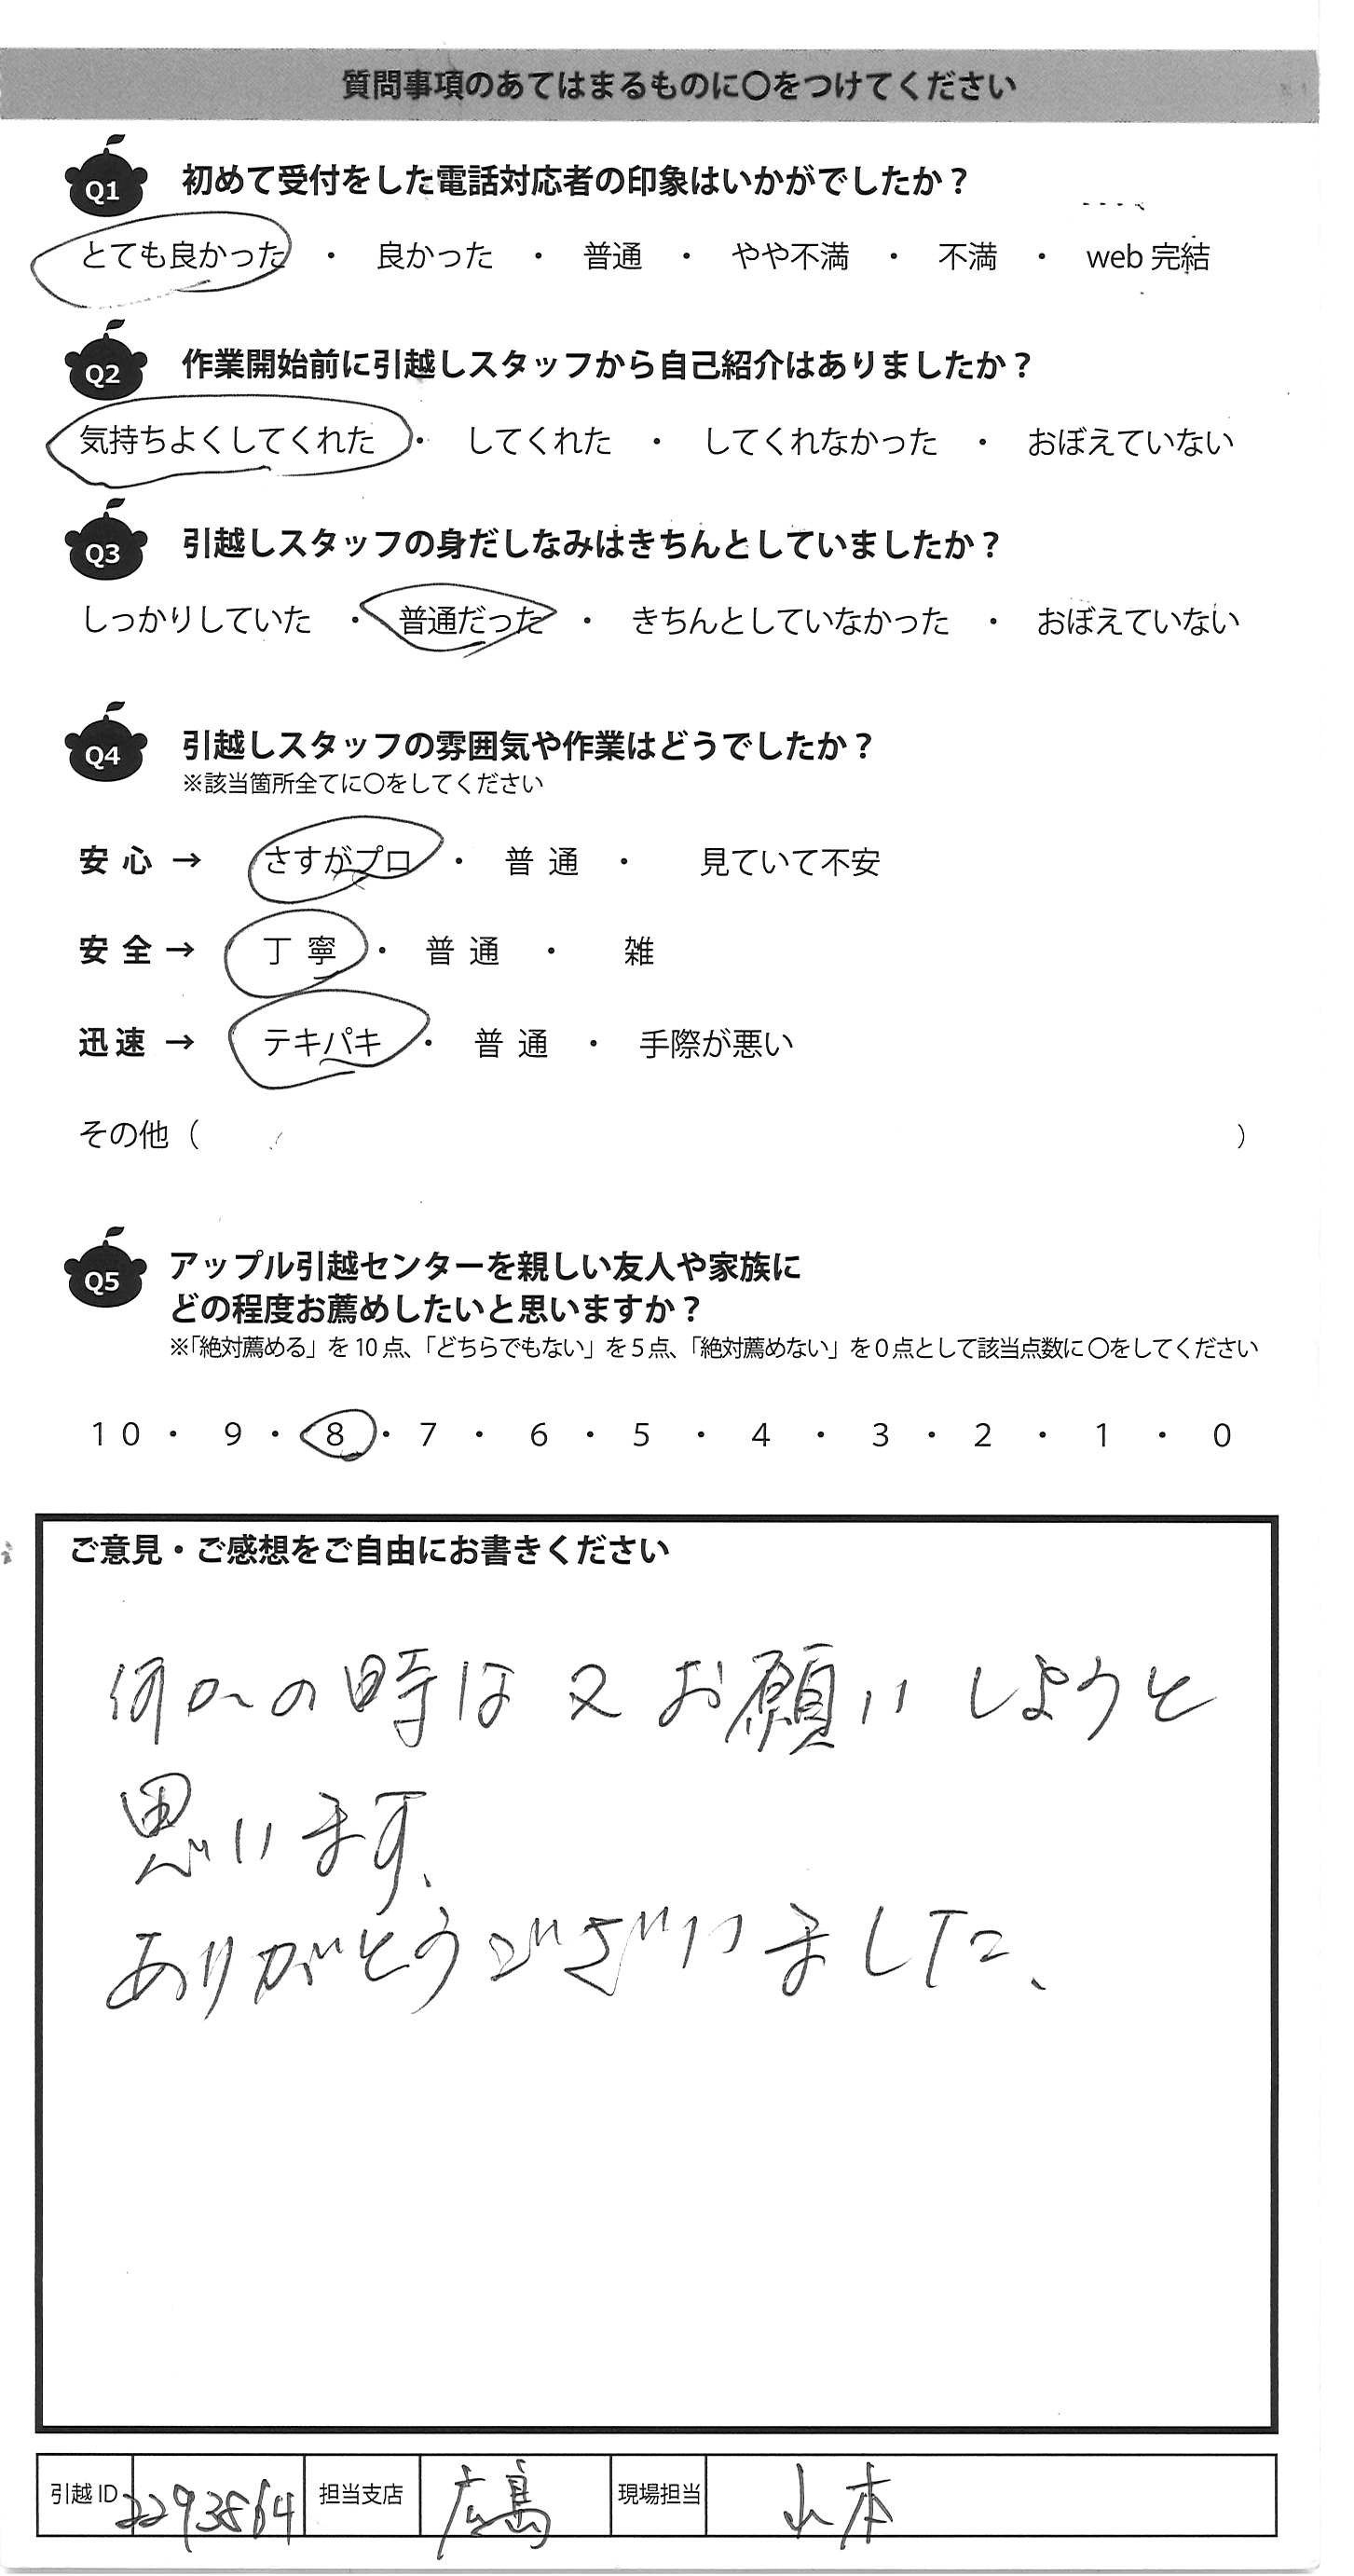 質問事項のあてはまるものに〇をつけてください
Q1 初めて受付をした電話対応者の印象はいかがでしたか？
とても良かった ・ 良かった ・ 普通 ・ やや不満 ・ 不満 ・ web 完結
Q2 作業開始前に引越しスタッフから自己紹介はありましたか？
気持ちよくしてくれた ・ してくれた ・ してくれなかった ・ おぼえていない
Q3 引越しスタッフの身だしなみはきちんとしていましたか？
しっかりしていた ・ 普通だった ・ きちんとしていなかった ・ おぼえていない
Q4 引越しスタッフの雰囲気や作業はどうでしたか？
※該当箇所全てに〇をしてください
安心 → さすがプロ ・ 普通 ・ 見ていて不安
安全 → 丁寧 ・ 普通 ・ 雑
迅速 → テキパキ ・ 普通 ・ 手際が悪い
その他（ ）
Q5 アップル引越センターを親しい友人や家族に
どの程度お薦めしたいと思いますか？
※「絶対薦める」を10点、「どちらでもない」を5点、「絶対薦めない」を0点として該当点数に〇をしてください
10 ・ 9 ・ 8 ・ 7 ・ 6 ・ 5 ・ 4 ・ 3 ・ 2 ・ 1 ・ 0
ご意見・ご感想をご自由にお書きください
何かの時は又お願いしようと
思います、
ありがとうございました、
引越ID 2293864 担当支店 広島 現場担当 山本